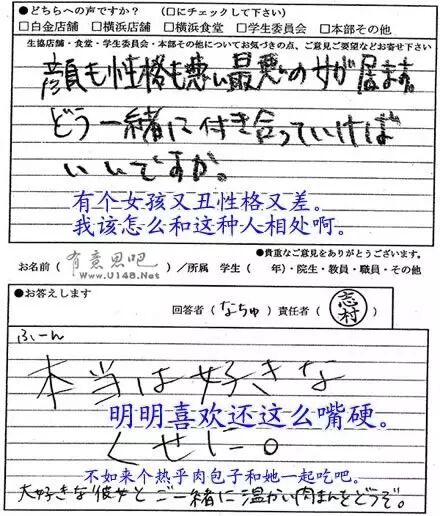 ●どちらへの声ですか? (□にチェックして下さい)
□白金店舗 □横浜店舗 □横浜食堂 □学生委員会 □本部その他
生協店舗・食堂・学生委員会・本部その他についてお気づきの点、ご意見ご要望などお寄せ下さい
顔も性格も悪い最悪の女が居ます。
どう一緒に付き合っていけば
いいですか。
有个女孩又丑性格又差。
我该怎么和这种人相处啊。
●貴重なご意見をありがとうございます。
お名前 ( 有意思吧 ) /所属 学生 ( 年)・院生・教員・職員・その他
www.U148.Net
●お答えします
回答者 (なちゅ) 責任者 (志村)
ふーん
本当は好きな
明明喜欢还这么嘴硬。
くせに。
不如来个热乎肉包子和她一起吃吧。
大好きな彼女とご一緒に温かい肉まんをどうぞ。